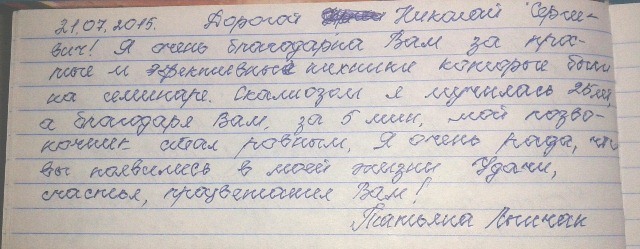 21.07.2015. Дорогой Николай Серге-
вич! Я очень благодарна Вам за прос-
тые и эфективные техники которые были
на семинаре. Сколиозом я мучилась 25 лет,
а благодаря Вам, за 5 мин, мой позво-
ночник стал ровным, Я очень рада, что
вы появились в моей жизни Удачи,
счастья, процветания Вам!
Татьяна